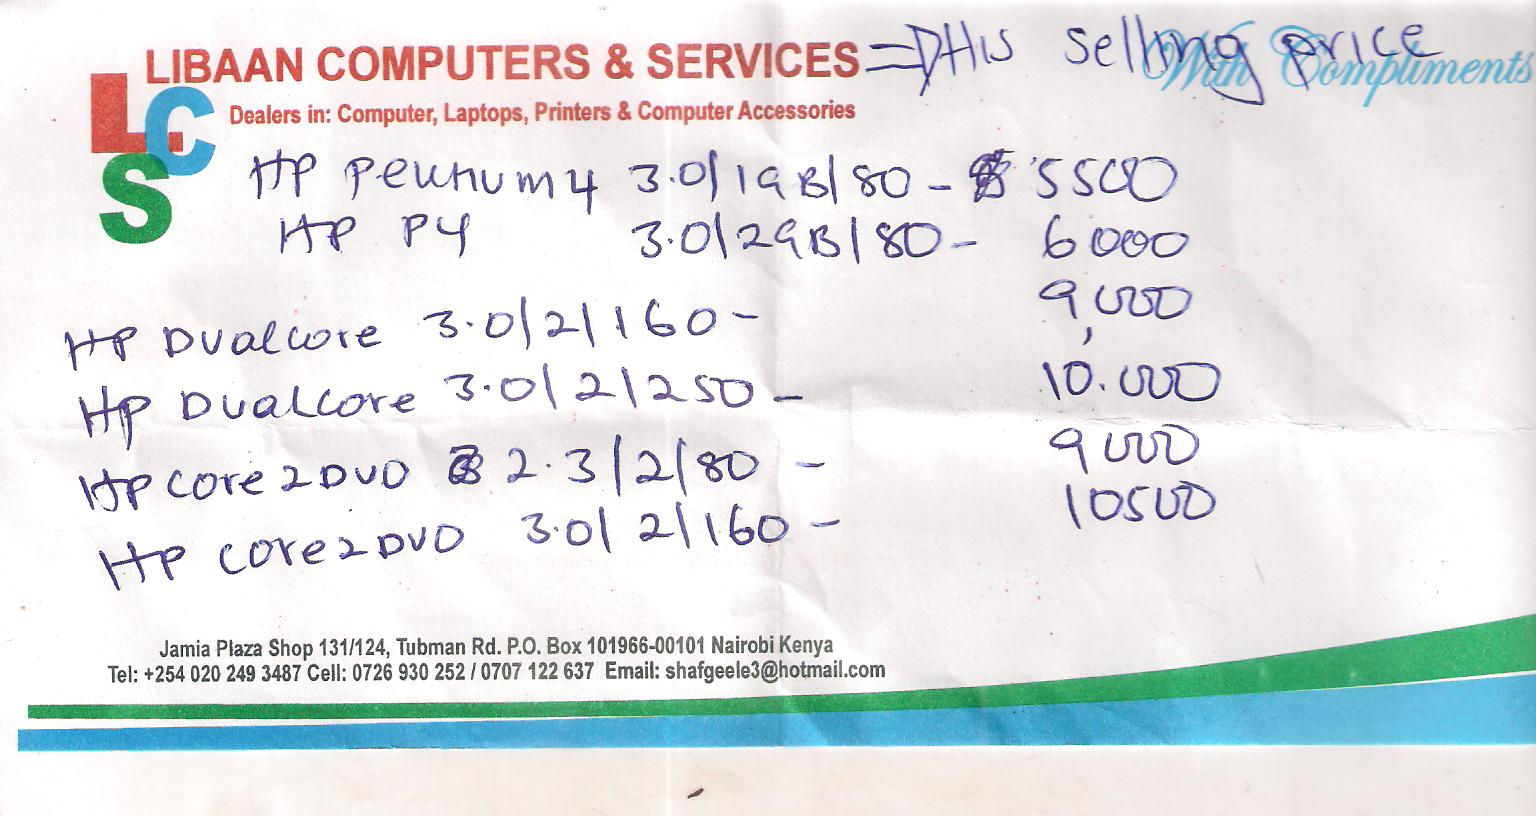 LIBAAN COMPUTERS & SERVICES => His selling price
With Compliments
LCS
Dealers in: Computer, Laptops, Printers & Computer Accessories
HP Pentium 4 3.0/1GB/80 - 5500
HP P4 3.0/2GB/80 - 6000
HP Dualcore 3.0/2/160 - 9,000
HP Dualcore 3.0/2/250 - 10.000
HP core 2 DUO 2.3/2/80 - 9000
HP core 2 DUO 3.0/2/160 - 10500
Jamia Plaza Shop 131/124, Tubman Rd. P.O. Box 101966-00101 Nairobi Kenya
Tel: +254 020 249 3487 Cell: 0726 930 252 / 0707 122 637 Email: shafgeele3@hotmail.com